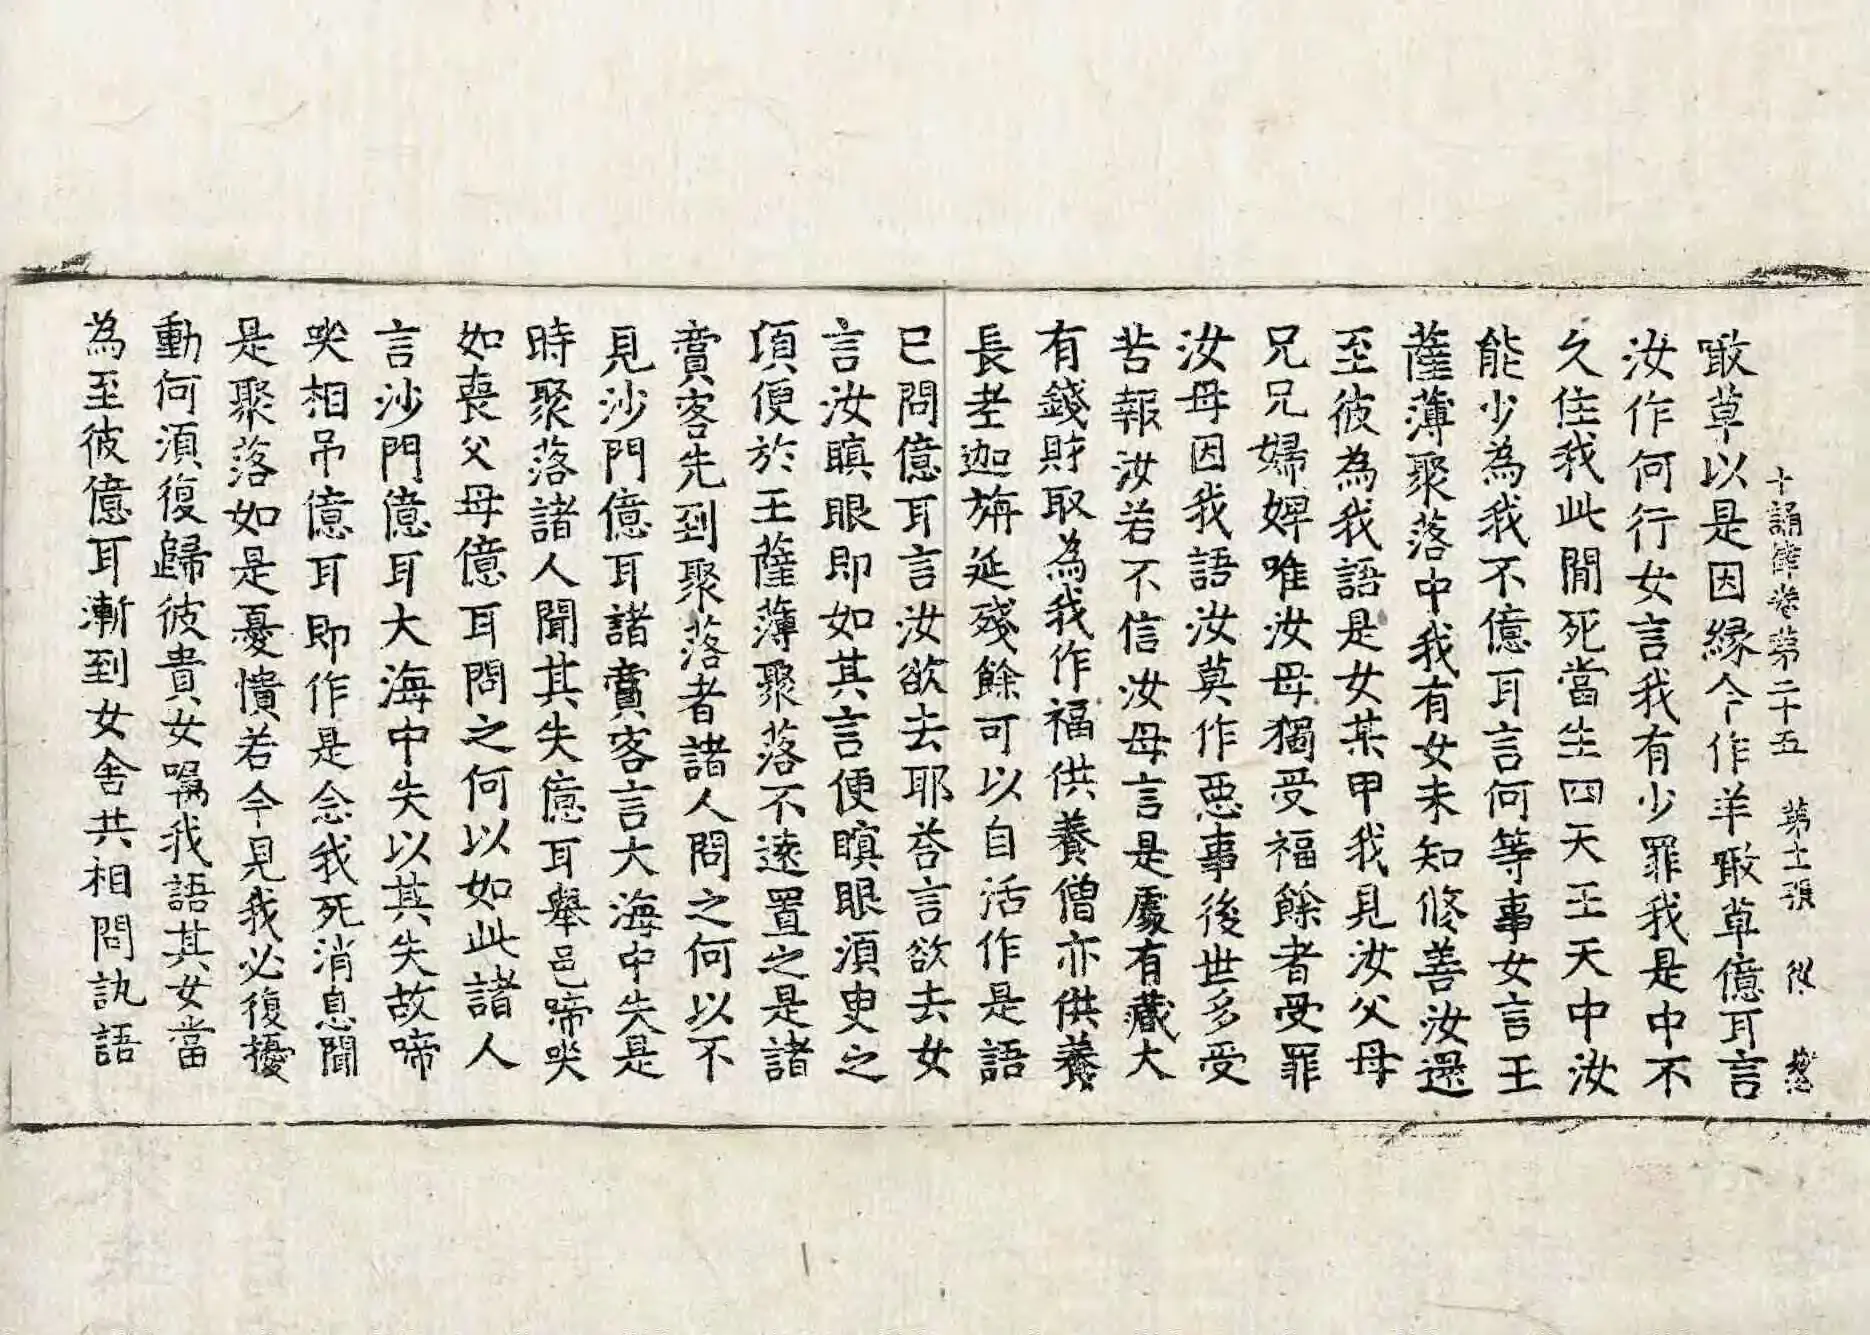 十誦律卷第二十五 第十一張 從
噉草以是因緣今作羊噉草億耳言
汝作何行女言我有少罪我是中不
久住我此間死當生四天王天中汝
能少為我不億耳言何等事女言王
薩薄聚落中我有女未知修善汝還
至彼為我語是女某甲我見汝父母
兄兄婦婢唯汝母獨受福餘者受罪
汝母因我語汝莫作惡事後世多受
苦報汝若不信汝母言是處有藏大
有錢財取為我作福供養僧亦供養
長老迦旃延殘餘可以自活作是語
已問億耳言汝欲去耶荅言欲去女
言汝瞑眼即如其言便瞑眼須臾之
頃便於王薩薄聚落不遠置之是諸
賈客先到聚落者諸人問之何以不
見沙門億耳諸賈客言大海中失是
時聚落諸人聞其失億耳舉邑啼哭
如喪父母億耳問之何以如此諸人
言沙門億耳大海中失以其失故啼
哭相吊億耳即作是念我死消息聞
是聚落如是憂憒若今見我必復擾
動何須復歸彼貴女囑我語其女當
為至彼億耳漸到女舍共相問訊語